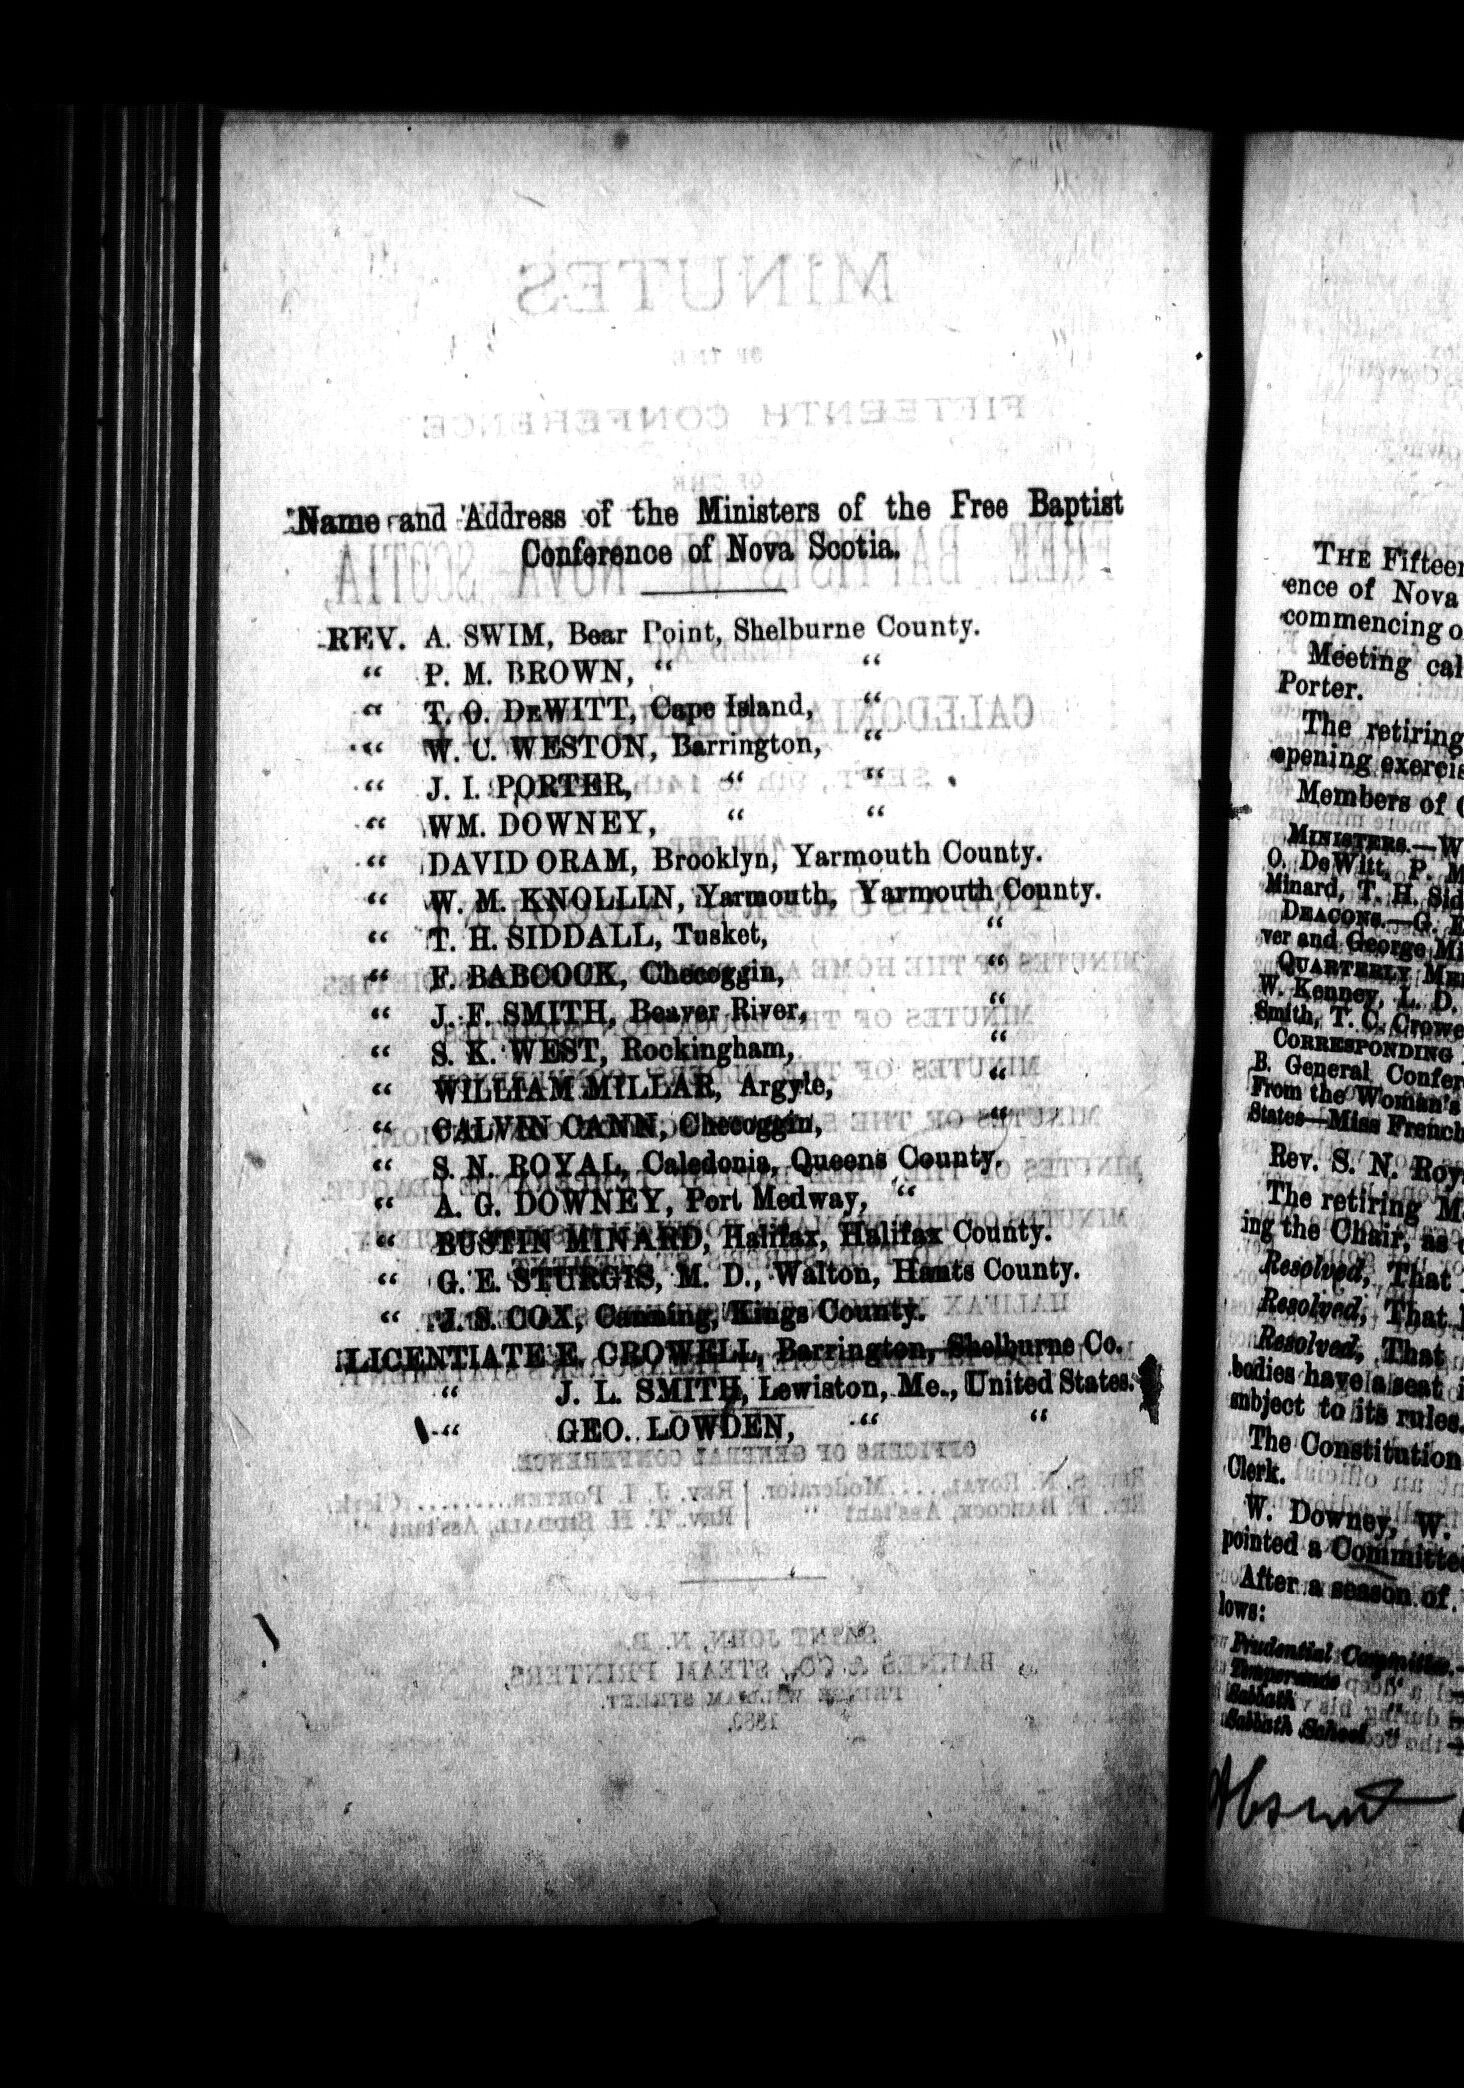 Name and Address of the Ministers of the Free Baptist
Conference of Nova Scotia.
REV. A. SWIM, Bear Point, Shelburne County.
“ P. M. BROWN, “ “
“ T. O. DEWITT, Cape Island, “
“ W. C. WESTON, Barrington, “
“ J. I. PORTER, “ “
“ WM. DOWNEY, “ “
“ DAVID ORAM, Brooklyn, Yarmouth County.
“ W. M. KNOLLIN, Yarmouth, Yarmouth County.
“ T. H. SIDDALL, Tusket, “
“ F. BABCOCK, Checoggin, “
“ J. F. SMITH, Beaver River, “
“ S. K. WEST, Rockingham, “
“ WILLIAM MILLAR, Argyle, “
“ CALVIN CANN, Checoggin, “
“ S. N. ROYAL, Caledonia, Queens County.
“ A. G. DOWNEY, Port Medway, “
“ BUSTIN MINARD, Halifax, Halifax County.
“ G. E. STURGIS, M. D., Walton, Hants County.
“ J. S. COX, Canning, Kings County.
LICENTIATE E. CROWELL, Barrington, Shelburne Co.
“ J. L. SMITH, Lewiston, Me., United States.
“ GEO. LOWDEN, “ “
THE Fifteen
ence of Nova
commencing o
Meeting cal
Porter.
The retiring
opening exercis
Members of
MINISTERS.—W
O. DeWitt, P. M
Minard, T. H. Sid
DEACONS.—G. E
ver and George Mi
QUARTERLY MEE
W. Kenney, L. D.
Smith, T. C. Crowe
CORRESPONDING
B. General Confer
From the Woman's
States—Miss French
Rev. S. N. Roy
The retiring M
ing the Chair, as
Resolved, That
Resolved, That
Resolved, That
bodies have a seat i
subject to its rules.
The Constitution
Clerk.
W. Downey, W.
pointed a Committee
After a season of
lows:
Prudential Committee.—
Temperance “
Sabbath “
Sabbath School “
Absent